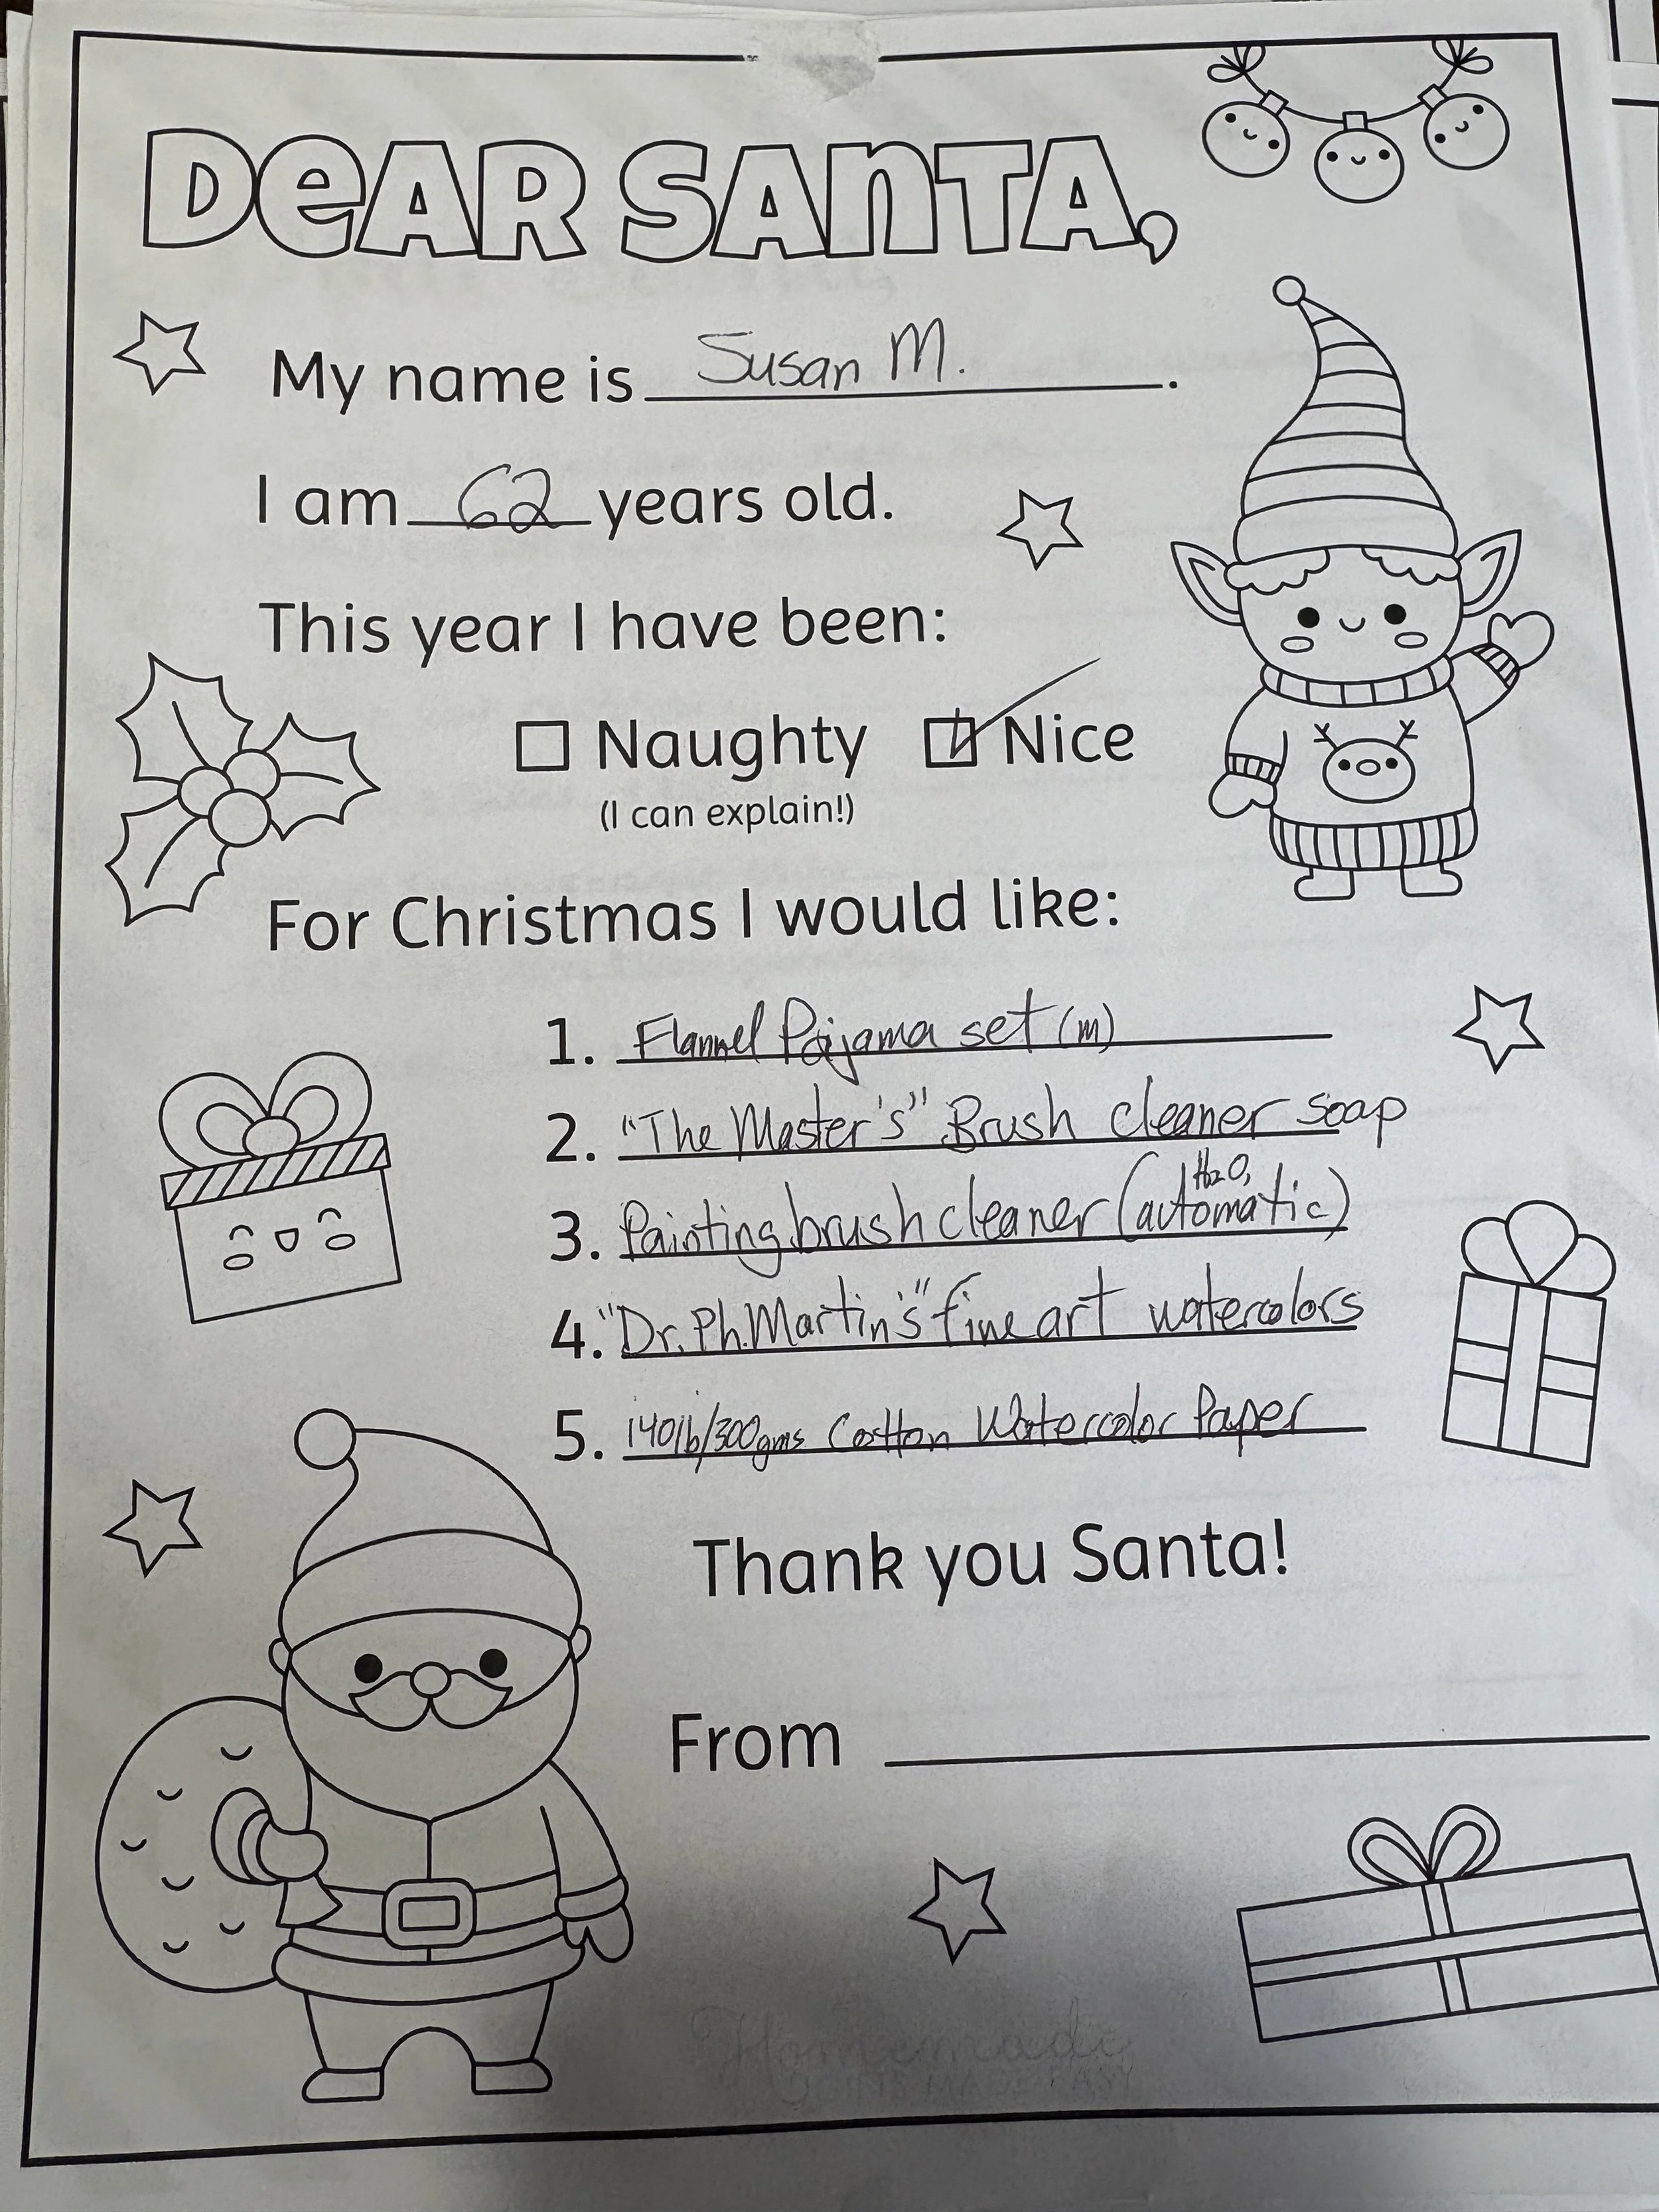 DeAR SANTA,
My name is Susan M.
I am 62 years old.
This year I have been:
Naughty Nice
(I can explain!)
For Christmas I would like:
1. Flannel Pajama set (m)
2. "The Master's" Brush cleaner soap
H2O,
3. Painting brush cleaner (automatic)
4. "Dr. Ph. Martin's" fine art watercolors
5. 140lb/300gms Cotton Watercolor Paper
Thank you Santa!
From
Homemade
MADE EASY